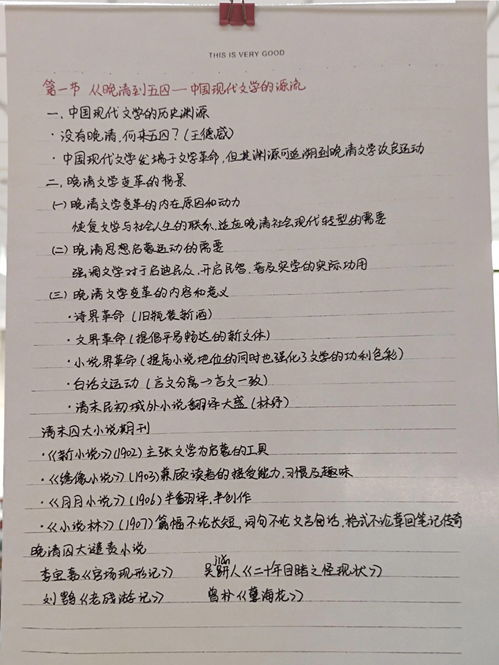 THIS IS VERY GOOD
第一节 从晚清到五四—中国现代文学的源流
一、中国现代文学的历史渊源
·没有晚清,何来五四?(王德威)
·中国现代文学发端于文学革命,但其渊源可追溯到晚清文学改良运动
二、晚清文学变革的背景
(一)晚清文学变革的内在原因和动力
恢复文学与社会人生的联系、适应晚清社会现代转型的需要
(二)晚清思想启蒙运动的需要
强调文学对于启迪民众、开启民智、普及实学的实际功用
(三)晚清文学变革的内容和意义
·诗界革命(旧瓶装新酒)
·文界革命(提倡平易畅达的新文体)
·小说界革命(提高小说地位的同时也强化了文学的功利色彩)
·白话文运动(言文分离→言文一致)
·清末民初域外小说翻译大盛(林纾)
清末四大小说期刊
·《新小说》(1902)主张文学为启蒙的工具
·《绣像小说》(1903)兼顾读者的接受能力、习惯及趣味
·《月月小说》(1906)半翻译,半创作
·《小说林》(1907)篇幅不论长短,词句不论文言白话,格式不论章回笔记传奇
晚清四大谴责小说
李宝嘉《官场现形记》 吴趼(jiǎn)人《二十年目睹之怪现状》
刘鹗《老残游记》 曾朴《孽海花》